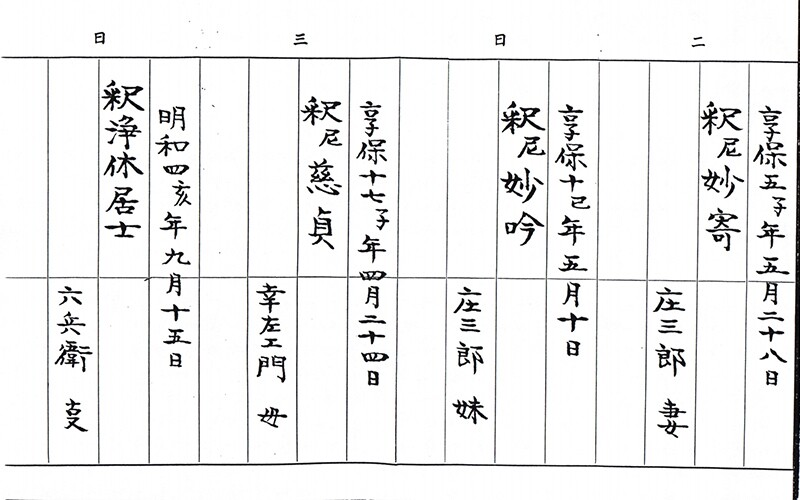 二 日 三 日
享保五子年五月二十八日
釈尼妙寄
庄三郎 妻
享保十巳年五月十日
釈尼妙吟
庄三郎 妹
享保十七子年四月二十四日
釈尼慈貞
幸左エ門 母
明和四亥年九月十五日
釈浄休居士
六兵衛